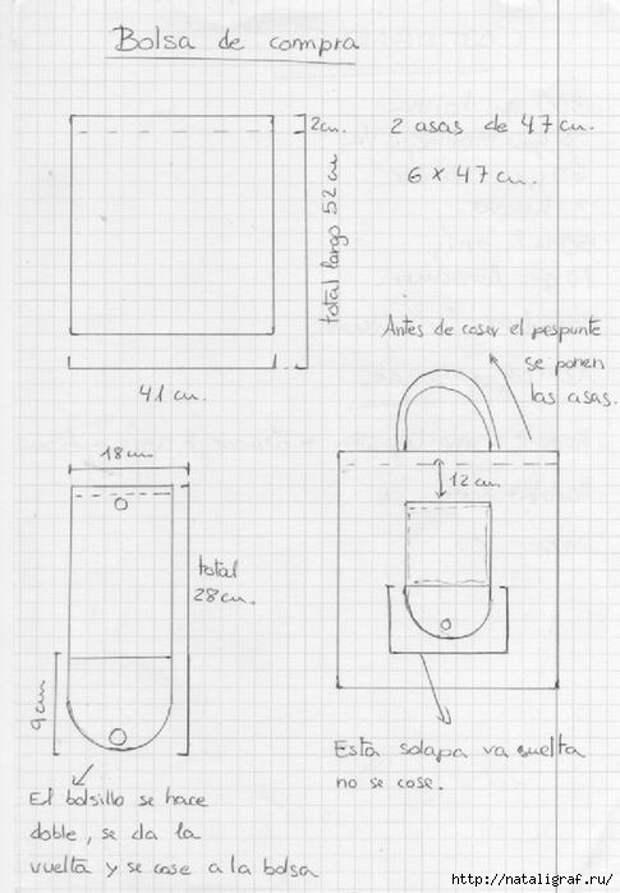 Bolsa de compra
2cm.
total largo 52 cm
41 cm.
2 asas de 47 cm.
6 x 47 cm.
Antes de coser el pespunte
se ponen
las asas.
12 cm
18cm
total
28cm.
9cm
Esta solapa va suelta
no se cose.
El bolsillo se hace
doble, se da la
vuelta y se cose a la bolsa
http://nataligraf.ru/